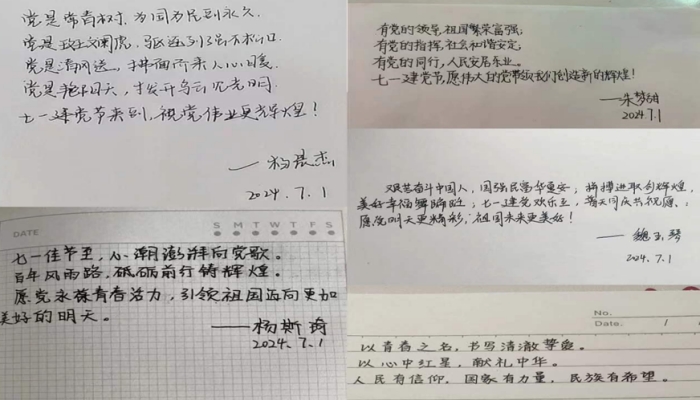 党是常青树,为国为民到永久。
党是
党是清风送,拂面而来人心暖。
党是艳阳天,拨开乌云见光明。
七一建党节来到,祝党伟业更辉煌!
2024.7.1
有党的领导,祖国繁荣富强;
有党的指挥,社会和谐安定;
有党的同行,人民安居乐业。
七一建党节,愿伟大的党带领我们创造新的辉煌!
2024.7.1
艰苦奋斗中国人,国强民富华夏安;拼搏进取创辉煌,
美好幸福舞蹁跹;七一建党欢乐至,普天同庆共祝愿,
愿党明天更精彩,祖国未来更美好!
——魏玉琴
2024.7.1
DATE
S M T W T F S
七一佳节至,心潮澎湃向党歌。
百年风雨路,砥砺前行铸辉煌。
愿党永葆青春活力,引领祖国迈向更加
美好的明天。
——杨斯琦
2024.7.1
No.
Date. /
以青春之名,书写清澈挚爱。
以心中红星,献礼中华。
人民有信仰,国家有力量,民族有希望。